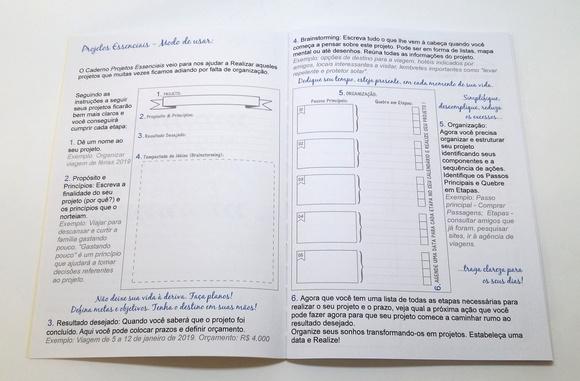 Projetos Essenciais - Modo de usar:
O Caderno Projetos Essenciais veio para nos ajudar a Realizar aqueles
projetos que muitas vezes ficamos adiando por falta de organização.
Seguindo as
instruções a seguir
seus projetos ficarão
bem mais claros e
você conseguirá
cumprir cada etapa:
1. Dê um nome ao
seu projeto.
Exemplo: Organizar
viagem de férias 2019
2. Propósito e
Princípios: Escreva a
finalidade do seu
projeto (por quê?) e
os princípios que o
norteiam.
Exemplo: Viajar para
descansar e curtir a
família gastando
pouco. "Gastando
pouco" é um princípio
que ajudará a tomar
decisões referentes
ao projeto.
1. PROJETO:
2. Propósito & Princípios:
3. Resultado Desejado:
4. Tempestade de Ideias (Brainstorming):
Não deixe sua vida à deriva. Faça planos!
Defina metas e objetivos. Tenha o destino em suas mãos!
3. Resultado desejado: Quando você saberá que o projeto foi
concluído. Aqui você pode colocar prazos e definir orçamento.
Exemplo: Viagem de 5 a 12 de janeiro de 2019. Orçamento: R$ 4.000
4. Brainstorming: Escreva tudo o que lhe vem à cabeça quando você
começa a pensar sobre este projeto. Pode ser em forma de listas, mapa
mental ou até desenhos. Reúna todas as informações do projeto.
Exemplo: opções de destino para a viagem, hotéis indicados por
amigos, locais interessantes a visitar, lembretes importantes como "levar
repelente e protetor solar"
Dedique seu tempo, esteja presente, em cada momento de sua vida.
5. ORGANIZAÇÃO:
Passos Principais:
Quebre em Etapas:
01
02
03
04
05
6. AGENDE UMA DATA PARA CADA ETAPA NO SEU CALENDÁRIO E REALIZE SEU PROJETO!
Simplifique,
descomplique, reduza
os excessos...
5. Organização:
Agora você precisa
organizar e estruturar
seu projeto
identificando seus
componentes e a
sequência de ações.
Identifique os Passos
Principais e Quebre
em Etapas.
Exemplo: Passo
principal - Comprar
Passagens; Etapas -
consultar amigos que
já foram, pesquisar
sites, ir à agência de
viagens.
...traga clareza para
os seus dias!
6. Agora que você tem uma lista de todas as etapas necessárias para
realizar o seu projeto e o prazo, veja qual a próxima ação que você
pode fazer agora para que seu projeto comece a caminhar rumo ao
resultado desejado.
Organize seus sonhos transformando-os em projetos. Estabeleça uma
data e Realize!